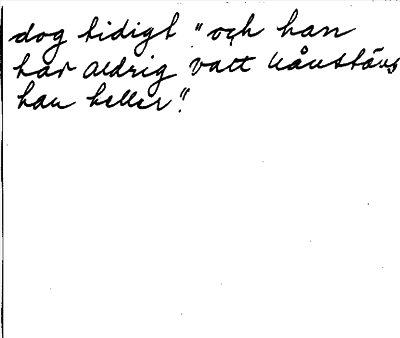 dog tidigt "och han
har aldrig vatt nånstäns
han heller".